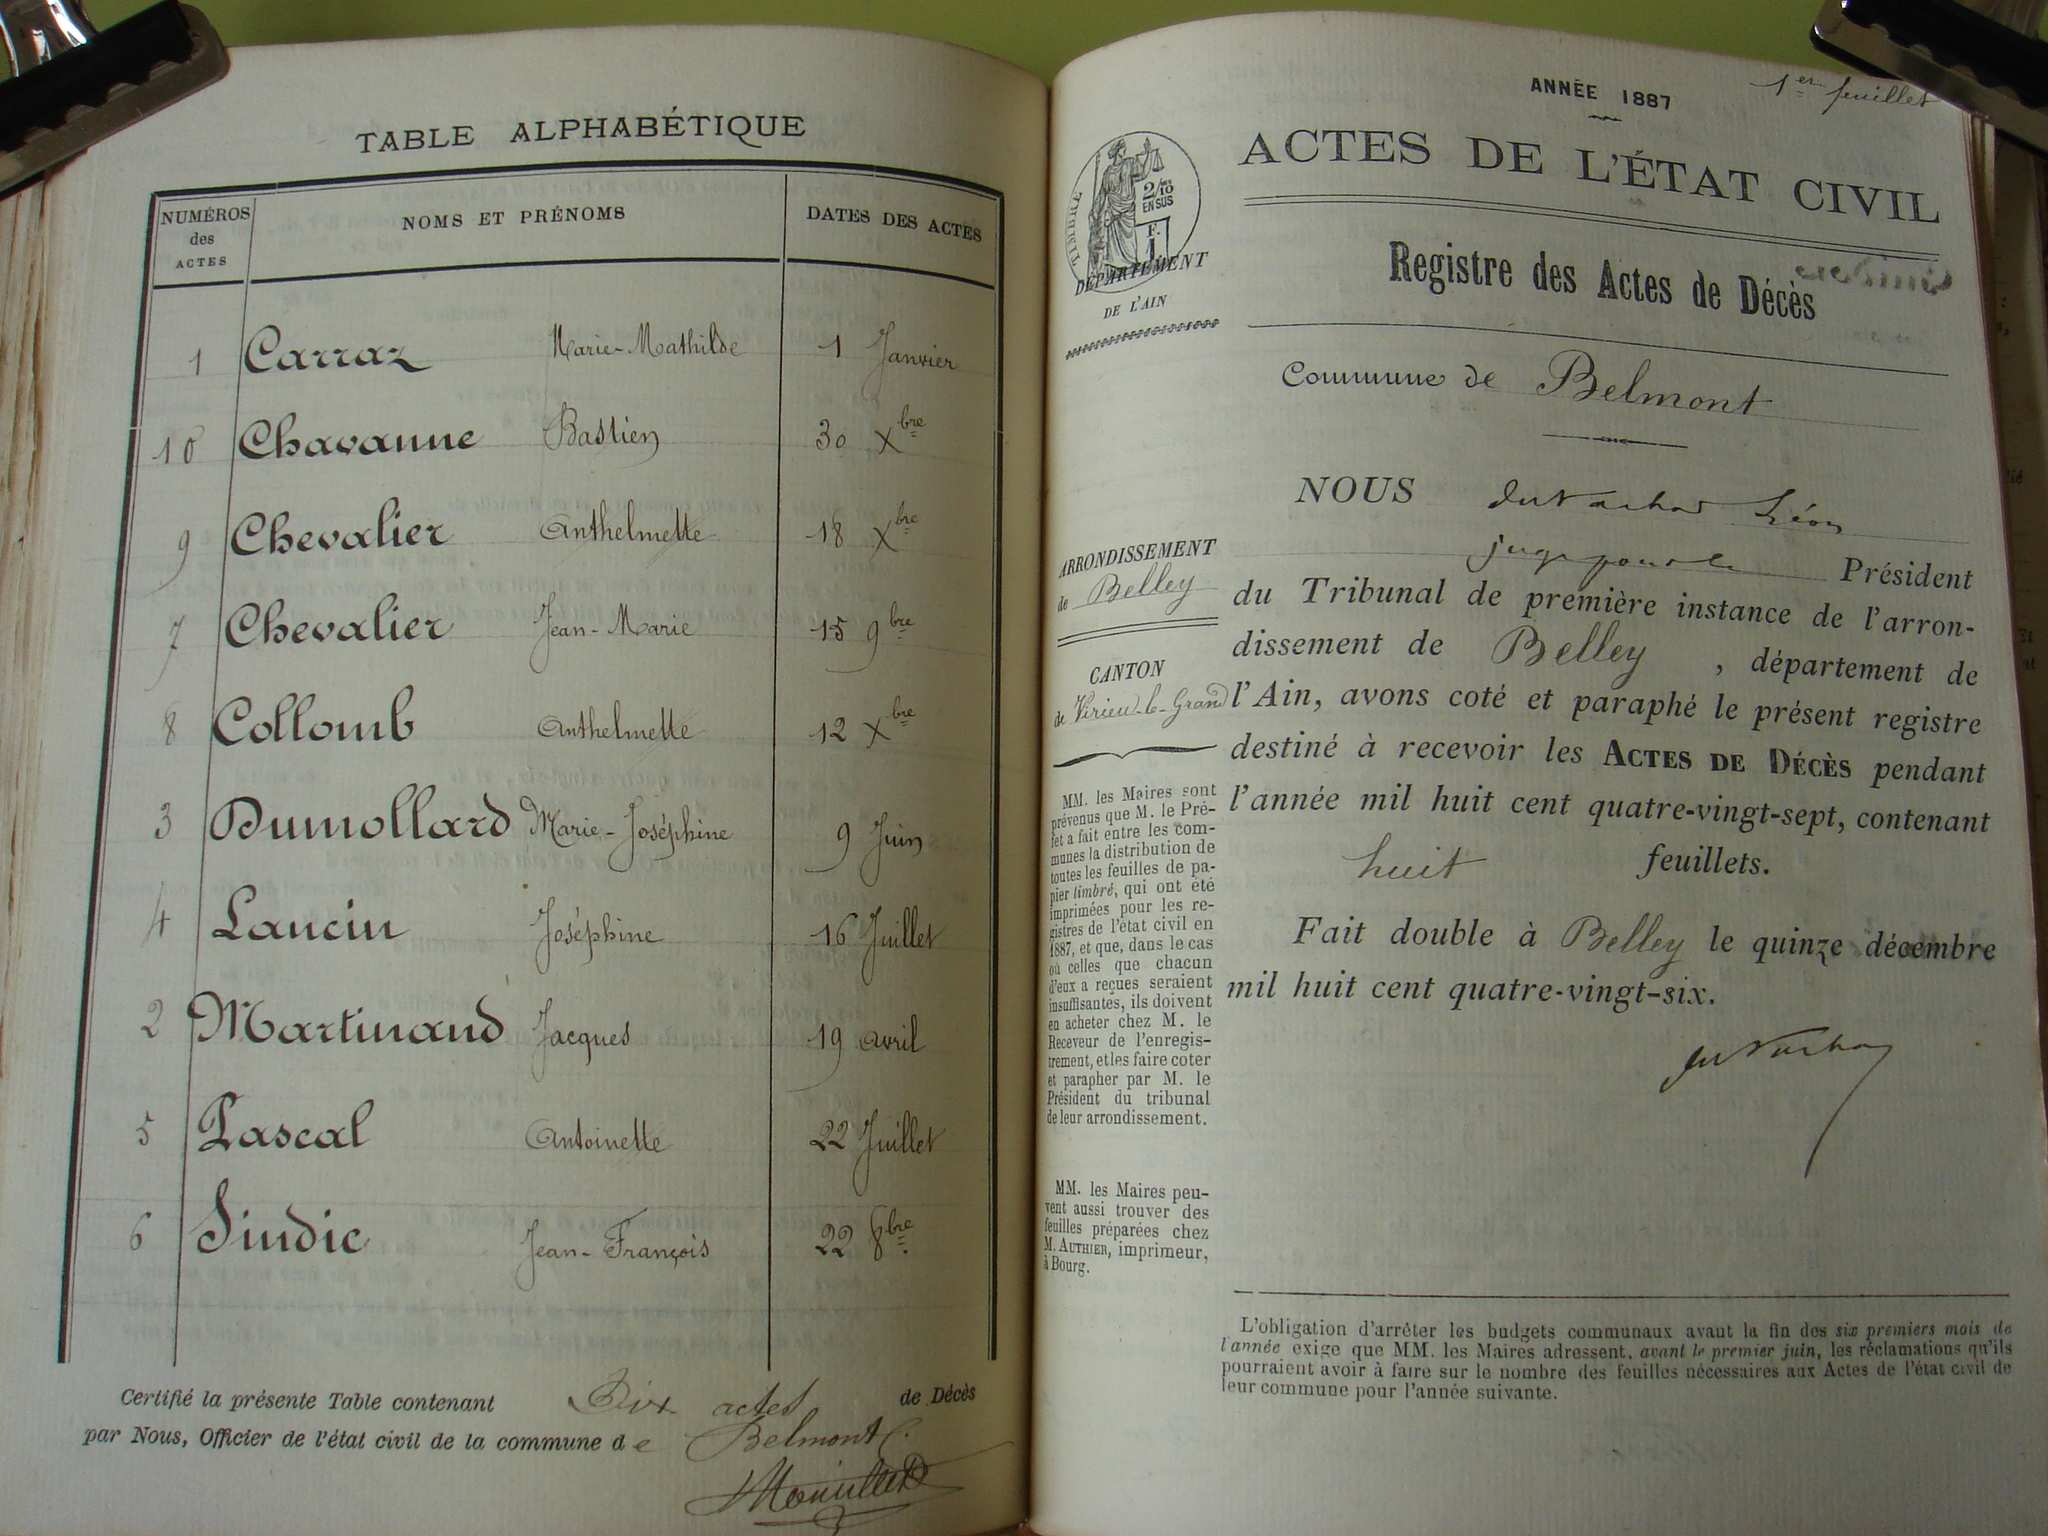 TABLE ALPHABÉTIQUE
NUMÉROS des ACTES NOMS ET PRÉNOMS DATES DES ACTES
1 Carraz Marie-Mathilde 1 Janvier
10 Chavanne Bastien 30 Xbre
9 Chevalier Anthelmette 18 Xbre
7 Chevalier Jean-Marie 15 9bre
8 Collomb Anthelmette 12 Xbre
3 Dumollard Marie-Joséphine 9 Juin
4 Lancin Joséphine 16 Juillet
2 Martinand Jacques 19 avril
5 Pascal Antoinette 22 Juillet
6 Sindic Jean-François 22 8bre
Certifié la présente Table contenant Dix actes de Décès
par Nous, Officier de l'état civil de la commune de Belmont
1er feuillet
ANNÉE 1887
ACTES DE L'ÉTAT CIVIL
Registre des Actes de Décès
TIMBRE
2/10
EN SUS
F.
1
DÉPARTEMENT
DE L'AIN
Commune de Belmont
ARRONDISSEMENT
de Belley
CANTON
de Virieu-le-Grand
MM. les Maires sont
prévenus que M. le Pré-
fet a fait entre les com-
munes la distribution de
toutes les feuilles de pa-
pier timbré, qui ont été
imprimées pour les re-
gistres de l'état civil en
1887, et que, dans le cas
où celles que chacun
d'eux a reçues seraient
insuffisantes, ils doivent
en acheter chez M. le
Receveur de l'enregis-
trement, et les faire coter
et parapher par M. le
Président du tribunal
de leur arrondissement.
MM. les Maires peu-
vent aussi trouver des
feuilles préparées chez
M. AUTHIER, imprimeur,
à Bourg.
NOUS Léon
juge pour le Président
du Tribunal de première instance de l'arron-
dissement de Belley, département de
l'Ain, avons coté et paraphé le présent registre
destiné à recevoir les ACTES DE DÉCÈS pendant
l'année mil huit cent quatre-vingt-sept, contenant
huit feuillets.
Fait double à Belley le quinze décembre
mil huit cent quatre-vingt-six.
L'obligation d'arrêter les budgets communaux avant la fin des six premiers mois de
l'année exige que MM. les Maires adressent, avant le premier juin, les réclamations qu'ils
pourraient avoir à faire sur le nombre des feuilles nécessaires aux Actes de l'état civil de
leur commune pour l'année suivante.